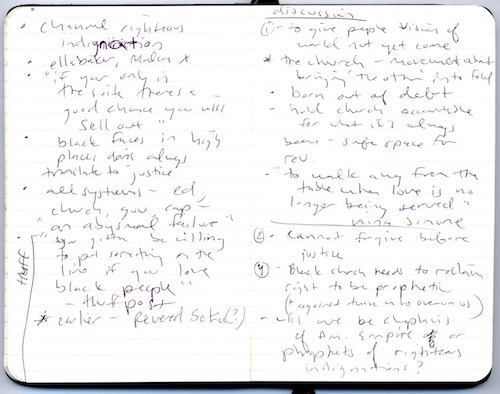 • channel righteous
indignation
• ella baker, Malcom X
• "if your only in
the suite theres a
good chance you will
sell out"
• black faces in high
places dosn't always
translate to "justice"
• all systems - ed,
church, gov, cap -
"an abysmal failure"
• "you gotta be willing
to put something on the
line if you love
black people"
- thuff post
thuff
* earlier - Revered Sekou?)
discussion
① - to give people vision of
world not yet come
* the church - movement about
bringing "the other" into fold
• born out of debt
- hold church accountable
for what it's always
been - safe space for
rev.
- "to walk away from the
table when love is no
longer being served"
nina simone
② - cannot forgive before
justice
④ - Black church needs to reclaim
right to be prophetic
(+ against those who oversee us)
- will we be chaplains
of Am. Empire or
prophets of righteous
indignations?